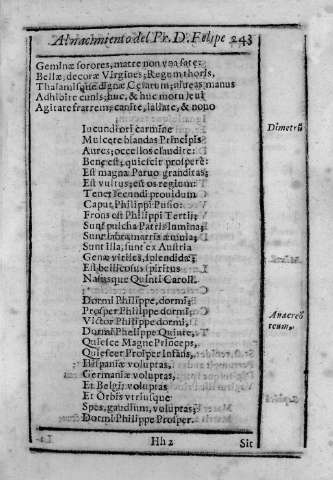 Al nacimiento del Pr. D. Felipe 243
Geminæ sorores, matre non vna satæ:
Bellæ, decoræ Virgines; Regum thoris,
Thalamisque dignæ Cesarum; niueas manus
Adhibete cunis; huc, & huc motu leui
Agitate fratrem; canite, lallate, & nouo
Iucundiori carmine
Dimetrū
Mulcete blandas Principis
Aures; occellos claudite:
Bene est; quiescit prosperè:
Est magna Paruo granditas;
Est vultus, est os regium:
Tenet secundi prouidum
Caput, Philippi Pusio:
Frons est Philippi Tertij;
Sunt pulcha Patris lumina;
Sunt labra matris æmula;
Sunt illa, sunt ex Austria
Genæ viriles, splendidæ;
Est bellicosus spiritus
Nasusque Quinti Caroli.
Dormi Philippe, dormi;
Prosper Philippe dormi,
Anacreō
Victor Philippe dormi,
teum,
Dormi Philippe Quinte,
Quiesce Magne Princeps,
Quiescet Prosper Infans,
Hispaniæ voluptas,
Germaniæ voluptas
Et Belgis voluptas
Et Orbis vtriusque
Spes, gaudium, voluptas;
Dormi Philippe Prosper.
Hh 2 Sit